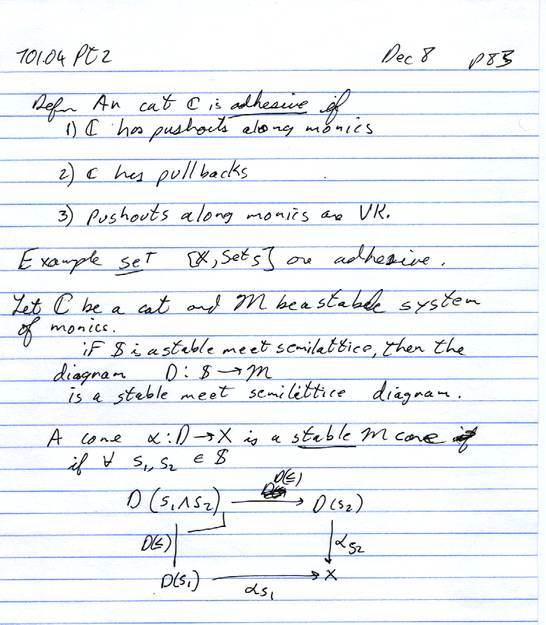 701.04 Pt 2 Dec 8 p83
Defn An cat ℂ is adhesive if
1) ℂ has pushouts along monics
2) ℂ has pullbacks
3) Pushouts along monics are VK.
Example set [X, Sets] are adhesive.
Let ℂ be a cat and M be a stable system
of monics.
if $ is a stable meet semilattice, then the
diagram D: $ → M
is a stable meet semilattice diagram.
A cone α: D → X is a stable M cone
if ∀ s₁, s₂ ∈ $
D(≤)
D(s₁ ∧ s₂) → D(s₂)
D(≤) α s₂
D(s₁) → X
α s₁